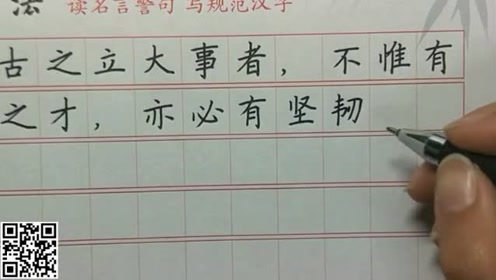 法 读名言警句 写规范汉字
古之立大事者，不惟有
之才，亦必有坚韧